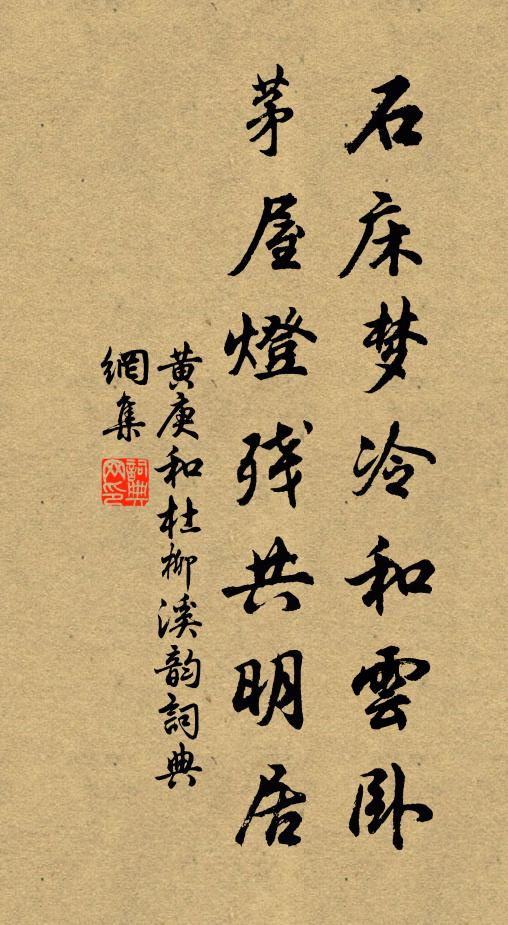 石床梦冷和雲卧
茅屋燈残共明居
黄庚和杜柳溪韵詞典
網集
詞典
网印